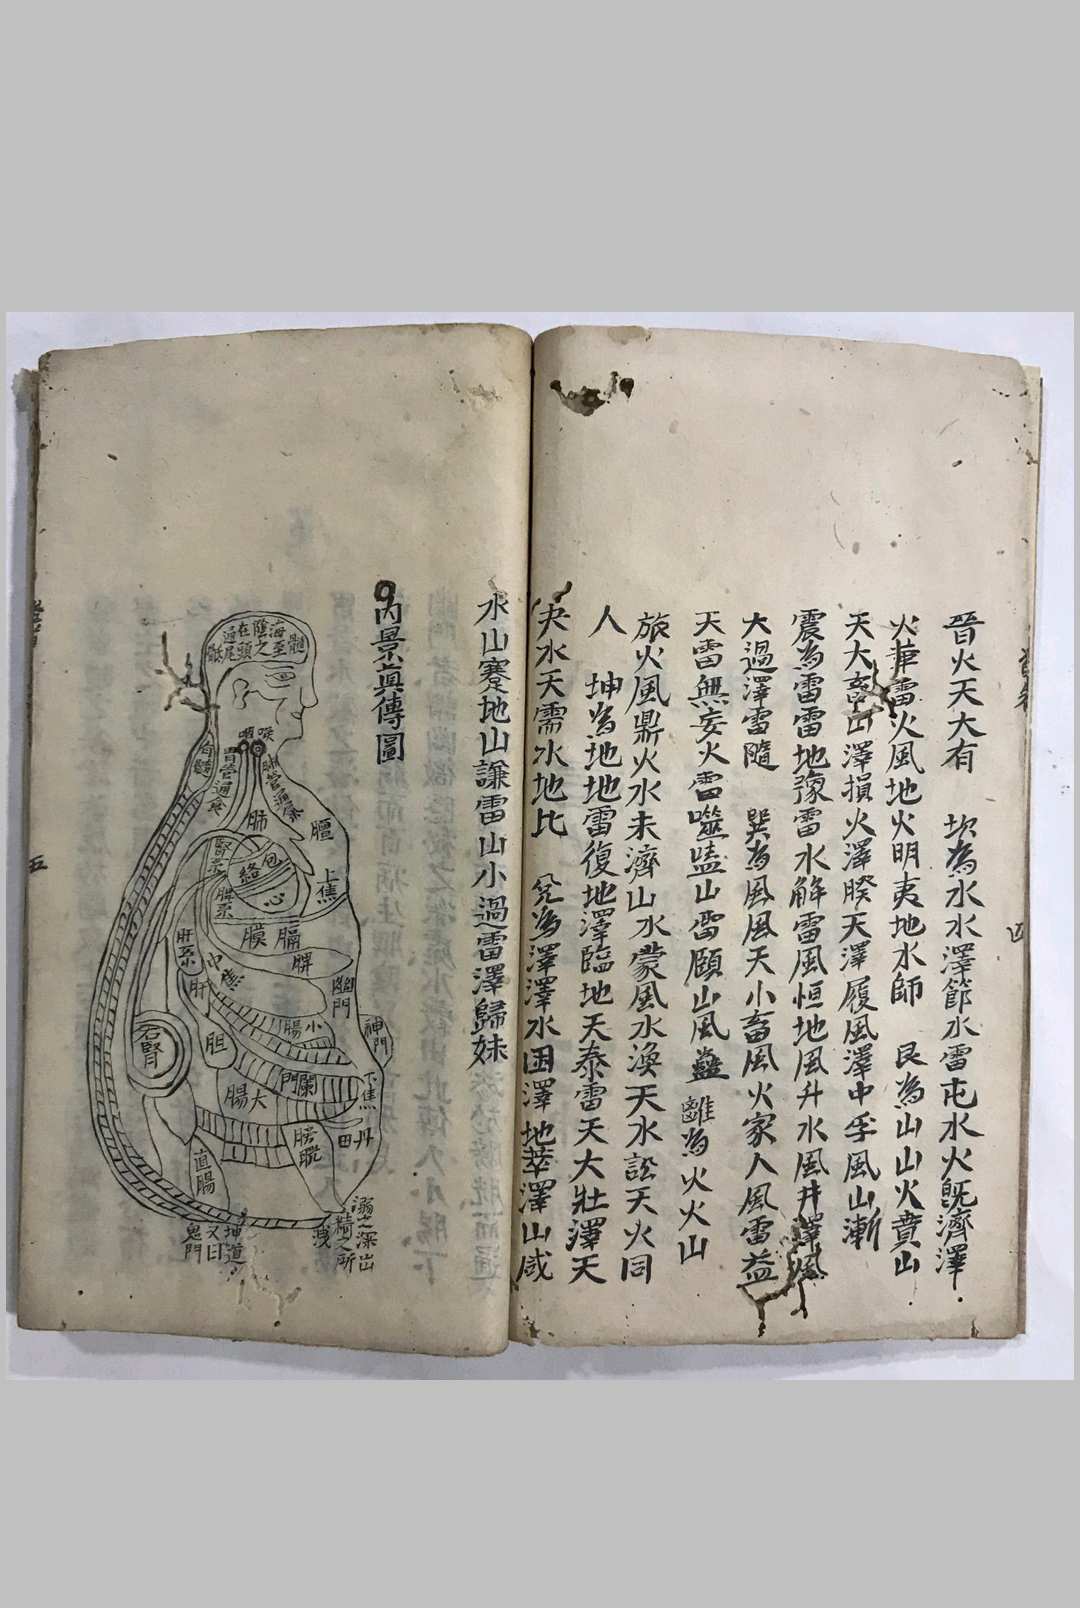 晉火天大有　坎為水水澤節水雷屯水火旣濟澤
火革雷火風地火明夷地水師　艮為山山火賁山
天大畜山澤損火澤睽天澤履風澤中孚風山漸
震為雷雷地豫雷水解雷風恒地風升水風井澤風
大過澤雷隨　巽為風風天小畜風火家人風雷益
天雷無妄火雷噬嗑山雷頤山風蠱　離為火火山
旅火風鼎火水未濟山水蒙風水渙天水訟天火同
人　坤為地地雷復地澤臨地天泰雷天大壯澤天
夬水天需水地比　兌為澤澤水困澤地萃澤山咸
四
水山蹇地山謙雷山小過雷澤歸妹
內景真傳圖
髓海至陰之在頭通尾骶
喉
咽
胃管通
肺管通
骨髓
肺
膻
上焦
腎系
脾系
包絡
心
膈膜
脾
肝
中焦
幽門
小腸
神門
胆
右腎
闌門
大腸
下焦
丹田
膀胱
直腸
溺之深出
精之所
洩
坤道
又曰
鬼門
五